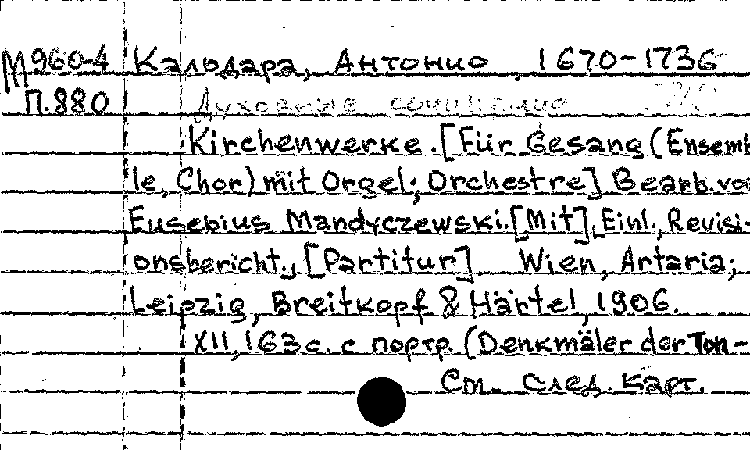 М960-4 Кальдара, Антонио 1670-1736
П.880 Духовные сочинения
Kirchenwerke. [Für Gesang (Ensemb
le, Chor) mit Orgel; Orchestre] Bearb. vo
Eusebius Mandyczewski. [Mit] Einl., Revisi-
onsbericht., [Partitur] Wien, Artaria;
Leipzig, Breitkopf & Härtel, 1906.
XII, 163 с. с портр. (Denkmäler der Ton-
См. след. карт.